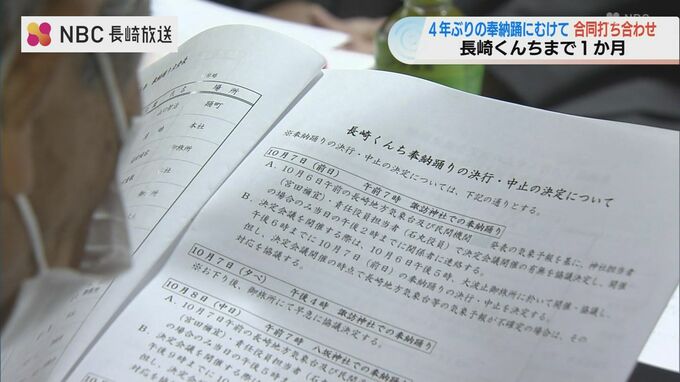 NBC 長崎放送
4年ぶりの奉納踊にむけて 合同打ち合わせ
長崎くんちまで1か月
場所
踊町
本社
御旅所
長崎くんち奉納踊りの決行・中止の決定について
※奉納踊りの決行・中止の決定については、下記の通りとする。
10月7日(前日) 午前7時 諏訪神社での奉納踊り
A. 10月6日午前の長崎地方気象台及び民間機関 発表の気象予報を基に、神社担当者
(宮田禰宜)・責任役員担当者(石丸役員)で決定会議開催の有無を協議決定し、開催
の場合のみ当日の午後2時までに関係者に連絡する。
B. 決定会議を開催する際は、10月6日午後6時、大波止御旅所に於いて開催・協議し、
午後6時までに10月7日(前日)の奉納踊りの決行・中止を決定する。
但し、決定会議開催の時点で長崎地方気象台等の気象予報が不確定の場合は、その
対応を協議する。
10月7日(夕べ) 午後4時 諏訪神社での奉納踊り
※お下り後、御旅所にて早急に協議決定する。
10月8日(中日) 午前7時 八坂神社での奉納踊り
A. 10月7日午前の長崎地方気象台及び民間機関
(宮田禰宜)・責任役員担当者(石丸
の場合のみ当日の午後2時までに関
B. 決定会議を開催